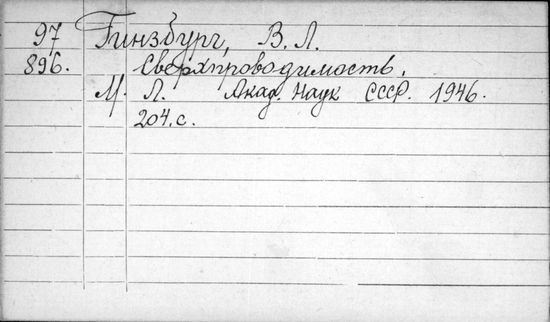 97 Гинзбург, В. Л.
896. Сверхпроводимость.
М. Л. Акад. Наук СССР. 1946.
204. с.